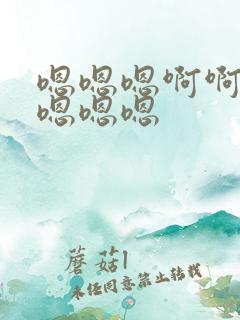 嗯嗯嗯啊啊
嗯嗯嗯
蘑菇l
未经同意禁止转载